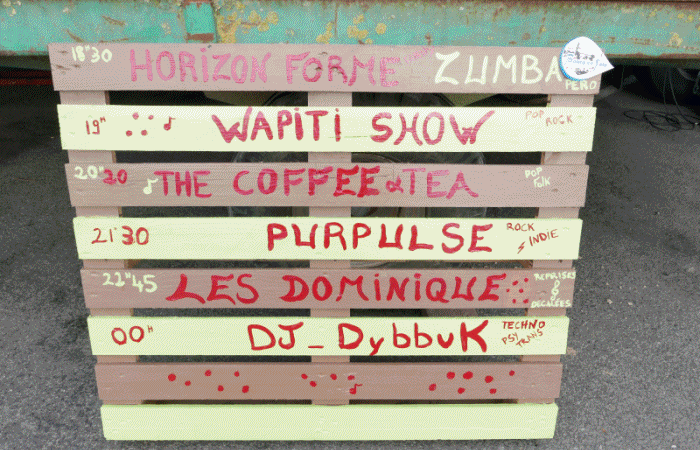 18H30 HORIZON FORME ZUMBA
PERO
19H WAPITI SHOW POP ROCK
20H30 THE COFFEE & TEA POP FOLK
21H30 PURPULSE ROCK INDIE
22H45 LES DOMINIQUE REPRISES DÉCALÉES
00H DJ_DybbuK TECHNO PSY TRANS